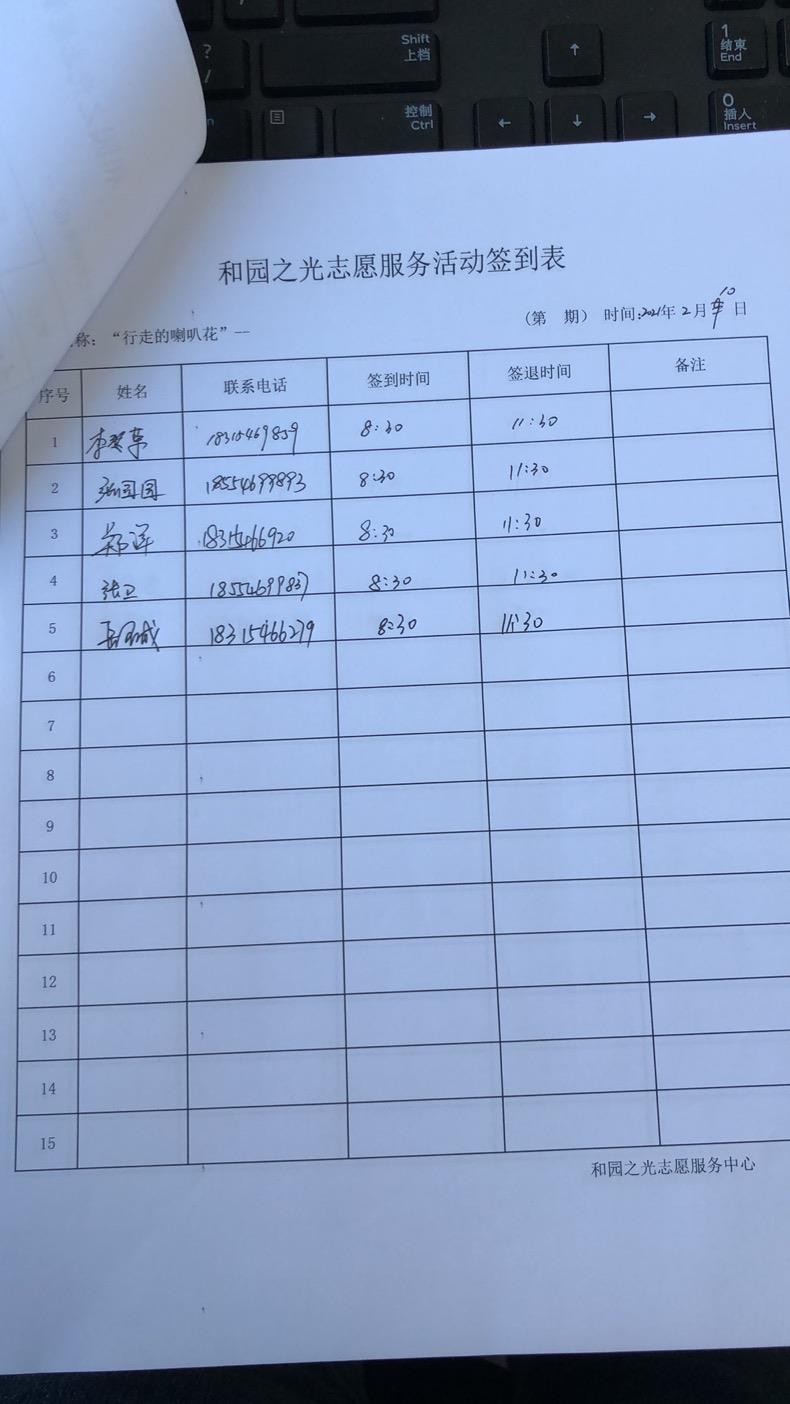 ?
/
Shift
上档
↑
1
结束
End
控制
Ctrl
←
↓
→
0
插入
Insert
和园之光志愿服务活动签到表
称：“行走的喇叭花”--
（第 期） 时间:2021年 2 月 10 日
序号 姓名 联系电话 签到时间 签退时间 备注
1 18315469859 8:30 11:30
2 张园园 18554699893 8:30 11:30
3 郑洋 18315466920 8:30 11:30
4 张卫 18554699837 8:30 11:30
5 18315466279 8:30 11:30
6
7
8
9
10
11
12
13
14
15
和园之光志愿服务中心